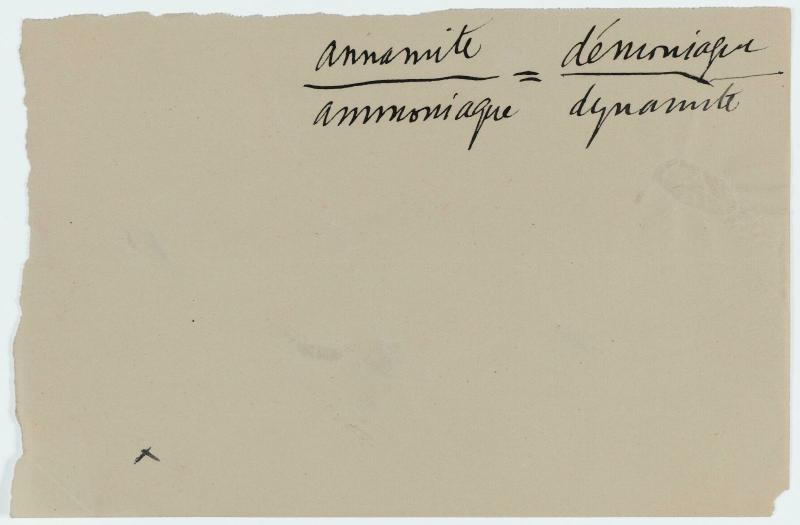 annamite = démoniaque
ammoniaque dynamite